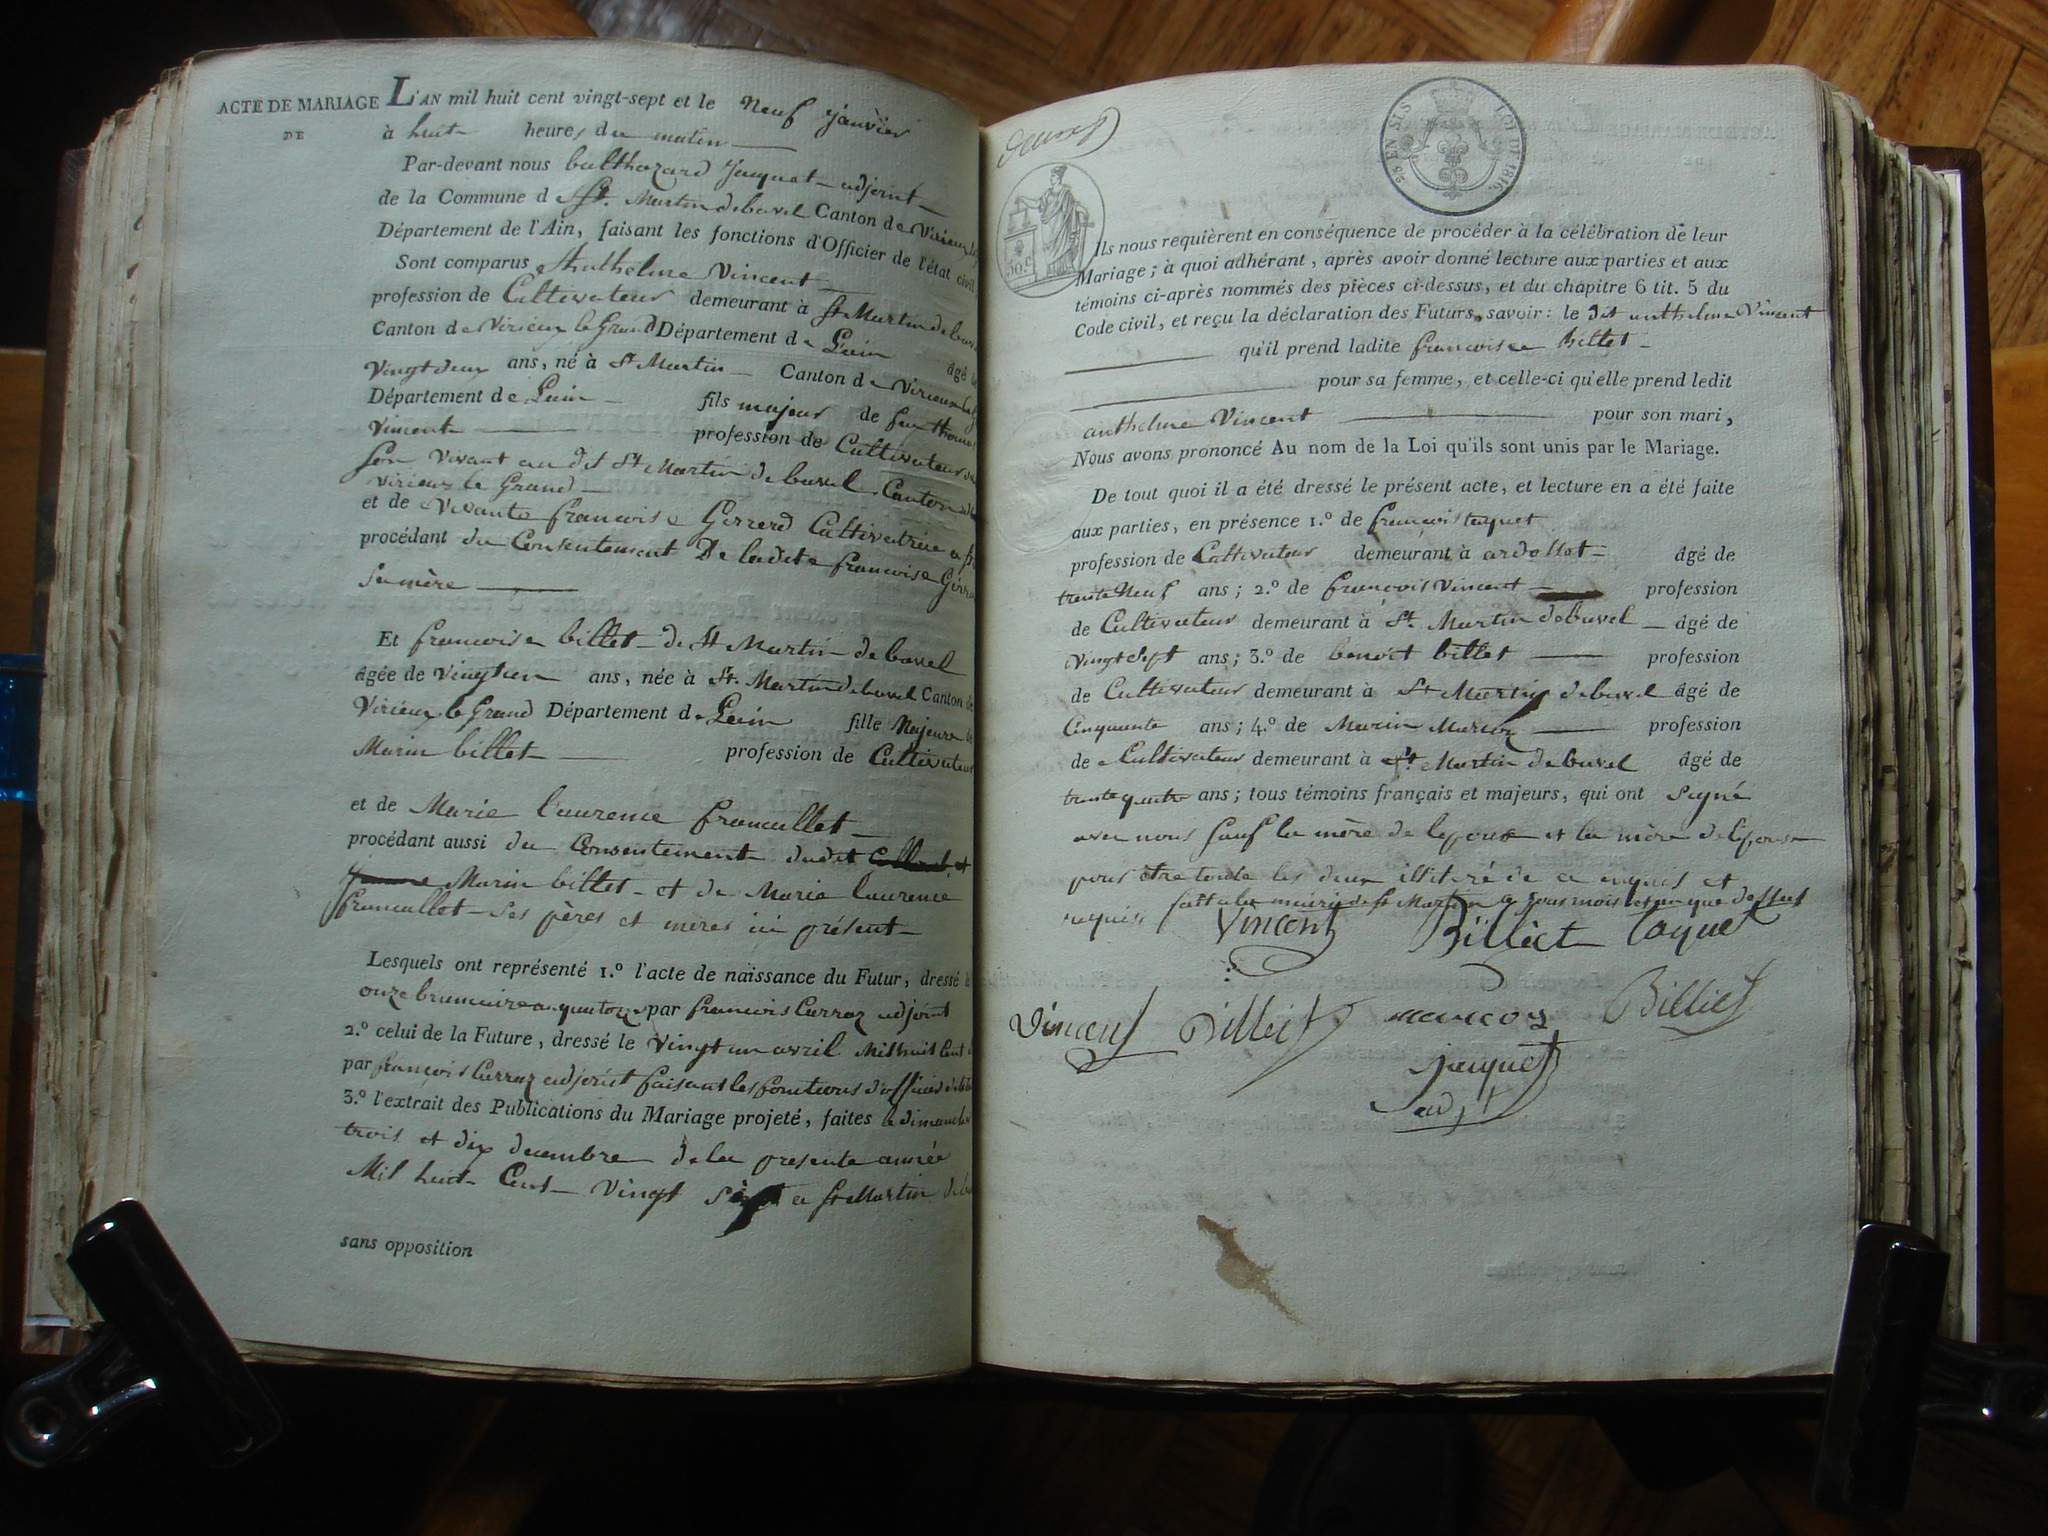 ACTE DE MARIAGE
DE
L'AN mil huit cent vingt-sept et le Neuf janvier
à huit heures du matin
Par-devant nous balthazard Jacquet adjoint
de la Commune d St. Martin debavel Canton de Virieux
Département de l'Ain, faisant les fonctions d'Officier de l'état civil
Sont comparus Anthelme Vincent
profession de Cultivateur demeurant à St Martin de bav
Canton de Virieux le Grand Département de Lain âgé de
Vingt deux ans, né à St Martin Canton de Virieux le g
Département de Lain fils majeur de feu thomas
Vincent profession de Cultivateur
Son vivant au dit St Martin de bavel Canton de
Virieux le Grand
et de Vivante francoise Gerrerd Cultivatrice
procédant du Consentement De ladite francoise
Sa mère
Et francoise billet de St Martin de bavel
âgée de Vingt ans, née à St. Martin debavel Canton de
Virieux le Grand Département de Lain fille Majeure de
Marin billet profession de Cultivateur
et de Marie laurence francallet
procédant aussi du Consentement dudit
Marin billet et de Marie laurence
francallet Ses pères et mères ici présent
Lesquels ont représenté 1.º l'acte de naissance du Futur, dressé le
onze brumaire an quatorze par francois Carraz adjoint
2.º celui de la Future, dressé le Vingt un avril Mil huit Cent
par françois Carraz adjoint faisant les fonctions d'officier
3.º l'extrait des Publications du Mariage projeté, faites le dimanche
trois et dix decembre de la presente année
Mil huit Cent Vingt a St Martin
sans opposition
25 EN SUS LOI DE 1816.
50.c
Ils nous requièrent en conséquence de procéder à la célébration de leur
Mariage ; à quoi adhérant, après avoir donné lecture aux parties et aux
témoins ci-après nommés des pièces ci-dessus, et du chapitre 6 tit. 5 du
Code civil, et reçu la déclaration des Futurs, savoir : le dit anthelme Vincent
qu'il prend ladite francoise billet
pour sa femme, et celle-ci qu'elle prend ledit
anthelme Vincent pour son mari,
Nous avons prononcé Au nom de la Loi qu'ils sont unis par le Mariage.
De tout quoi il a été dressé le présent acte, et lecture en a été faite
aux parties, en présence 1.º de francois taquet
profession de Cultivateur demeurant à ardollet âgé de
trente Neuf ans ; 2.º de françois Vincent profession
de Cultivateur demeurant à St. Martin debavel âgé de
Vingt Sept ans ; 3.º de benoit billet profession
de Cultivateur demeurant à St Martin debavel âgé de
Cinquante ans ; 4.º de Marin Marcoz profession
de Cultivateur demeurant à St Martin debavel âgé de
trente quatre ans ; tous témoins français et majeurs, qui ont signé
avec nous sauf la mère de lepoux et la mère de lepouse
pour être toute les deux illitéré de ce enquis et
requis fait a la mairie de St Martin a jour mois et an que dessus
Vincent Billiet taquet
Vincent Billiet marcoz Billiet
jacquet
adjt